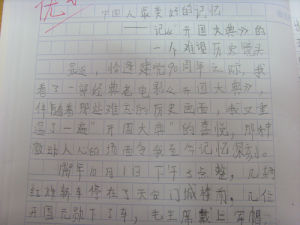 优
中国人最美好的记忆
——记《开国大典》的
一个难忘历史镜头
最近，恰逢建党90周年之际，我
看了一部经典老电影《开国大典》，
伴随着那些难忘的历史画面，我又重
温了一遍“开国大典”的喜悦，那种
激动人心的场面令我至今记忆深刻。
10月1日下午3点整，几辆
红旗轿车停在了天安门城楼前，几位
开国元勋下了车，毛主席戴上军帽，